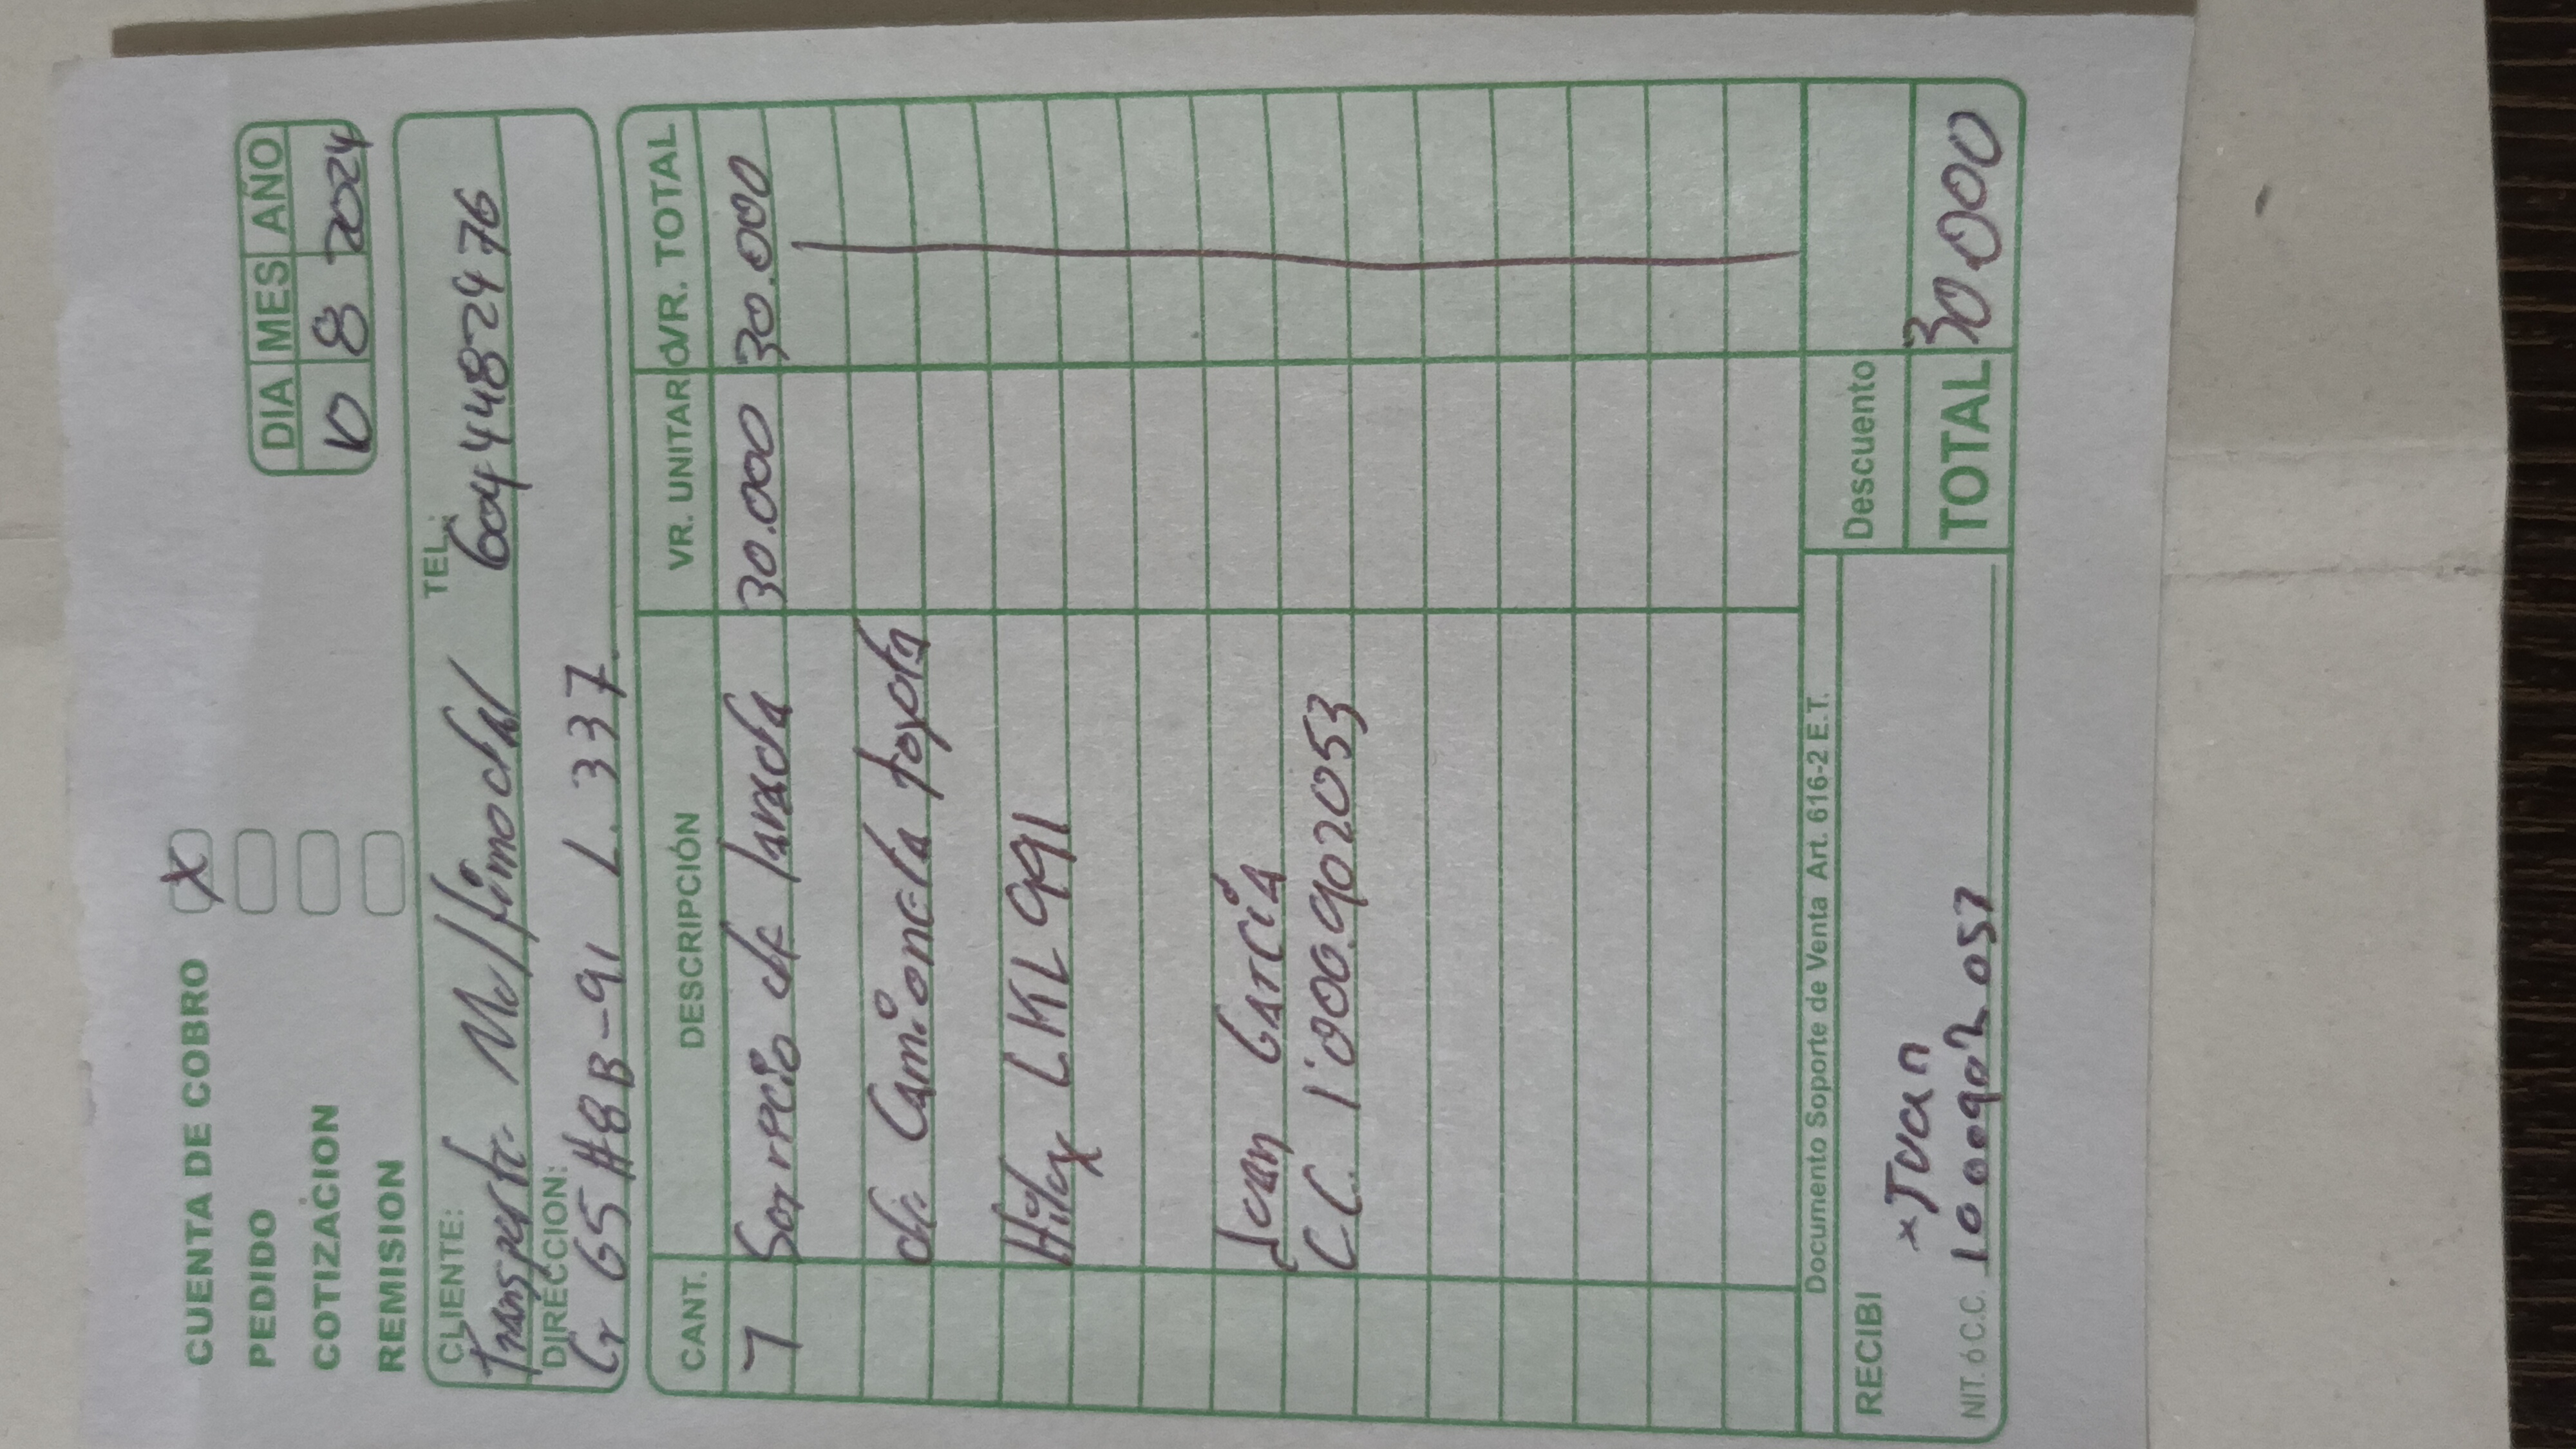 CUENTA DE COBRO X
PEDIDO
COTIZACION
REMISION
DIA MES AÑO
10 8 2024
CLIENTE: TEL.:
Transporte 604 4482476
DIRECCION:
Cr 65 #8B-91 L. 337
CANT. DESCRIPCIÓN VR. UNITARIO VR. TOTAL
1 Servicio de lavada 30.000 30.000
de Camioneta toyota
Hilux LKL 991
Juan Garcia
C.C. 1'000.902053
Documento Soporte de Venta Art. 616-2 E.T.
RECIBI
x Juan
NIT. ó C.C. 1000902053
Descuento
TOTAL 30.000